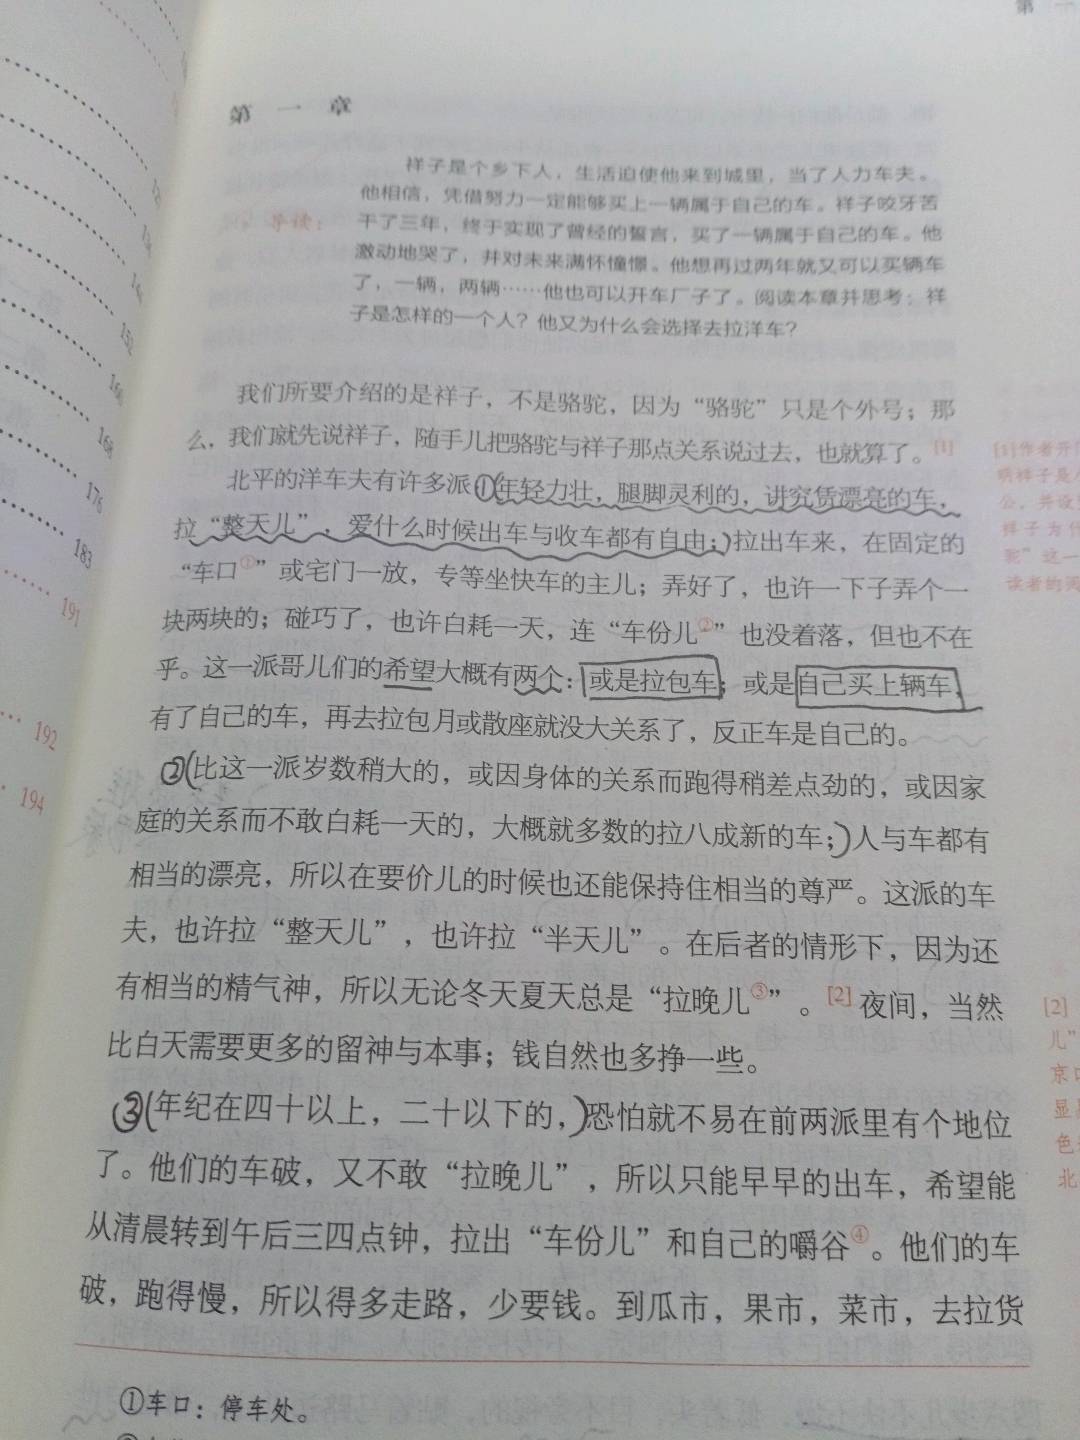 第一
152
166
168
176
183
191
192
194
第一章
导读：
祥子是个乡下人，生活迫使他来到城里，当了人力车夫。
他相信，凭借努力一定能够买上一辆属于自己的车。祥子咬牙苦
干了三年，终于实现了曾经的誓言，买了一辆属于自己的车。他
激动地哭了，并对未来满怀憧憬。他想再过两年就又可以买辆车
了，一辆，两辆……他也可以开车厂子了。阅读本章并思考：祥
子是怎样的一个人？他又为什么会选择去拉洋车？
我们所要介绍的是祥子，不是骆驼，因为“骆驼”只是个外号；那
么，我们就先说祥子，随手儿把骆驼与祥子那点关系说过去，也就算了。[1]
北平的洋车夫有许多派①(年轻力壮，腿脚灵利的，讲究赁漂亮的车，
拉“整天儿”，爱什么时候出车与收车都有自由；)拉出车来，在固定的
“车口①”或宅门一放，专等坐快车的主儿；弄好了，也许一下子弄个一
块两块的；碰巧了，也许白耗一天，连“车份儿②”也没着落，但也不在
乎。这一派哥儿们的希望大概有两个：或是拉包车；或是自己买上辆车，
有了自己的车，再去拉包月或散座就没大关系了，反正车是自己的。
②(比这一派岁数稍大的，或因身体的关系而跑得稍差点劲的，或因家
庭的关系而不敢白耗一天的，大概就多数的拉八成新的车；)人与车都有
相当的漂亮，所以在要价儿的时候也还能保持住相当的尊严。这派的车
夫，也许拉“整天儿”，也许拉“半天儿”。在后者的情形下，因为还
有相当的精气神，所以无论冬天夏天总是“拉晚儿③”。[2]夜间，当然
比白天需要更多的留神与本事；钱自然也多挣一些。
③(年纪在四十以上，二十以下的，)恐怕就不易在前两派里有个地位
了。他们的车破，又不敢“拉晚儿”，所以只能早早的出车，希望能
从清晨转到午后三四点钟，拉出“车份儿”和自己的嚼谷④。他们的车
破，跑得慢，所以得多走路，少要钱。到瓜市，果市，菜市，去拉货
①车口：停车处。
[1]作者开
明祥子是
公，并设
祥子为什
驼”这一
读者的阅
[2]
儿”
京
显
色
北